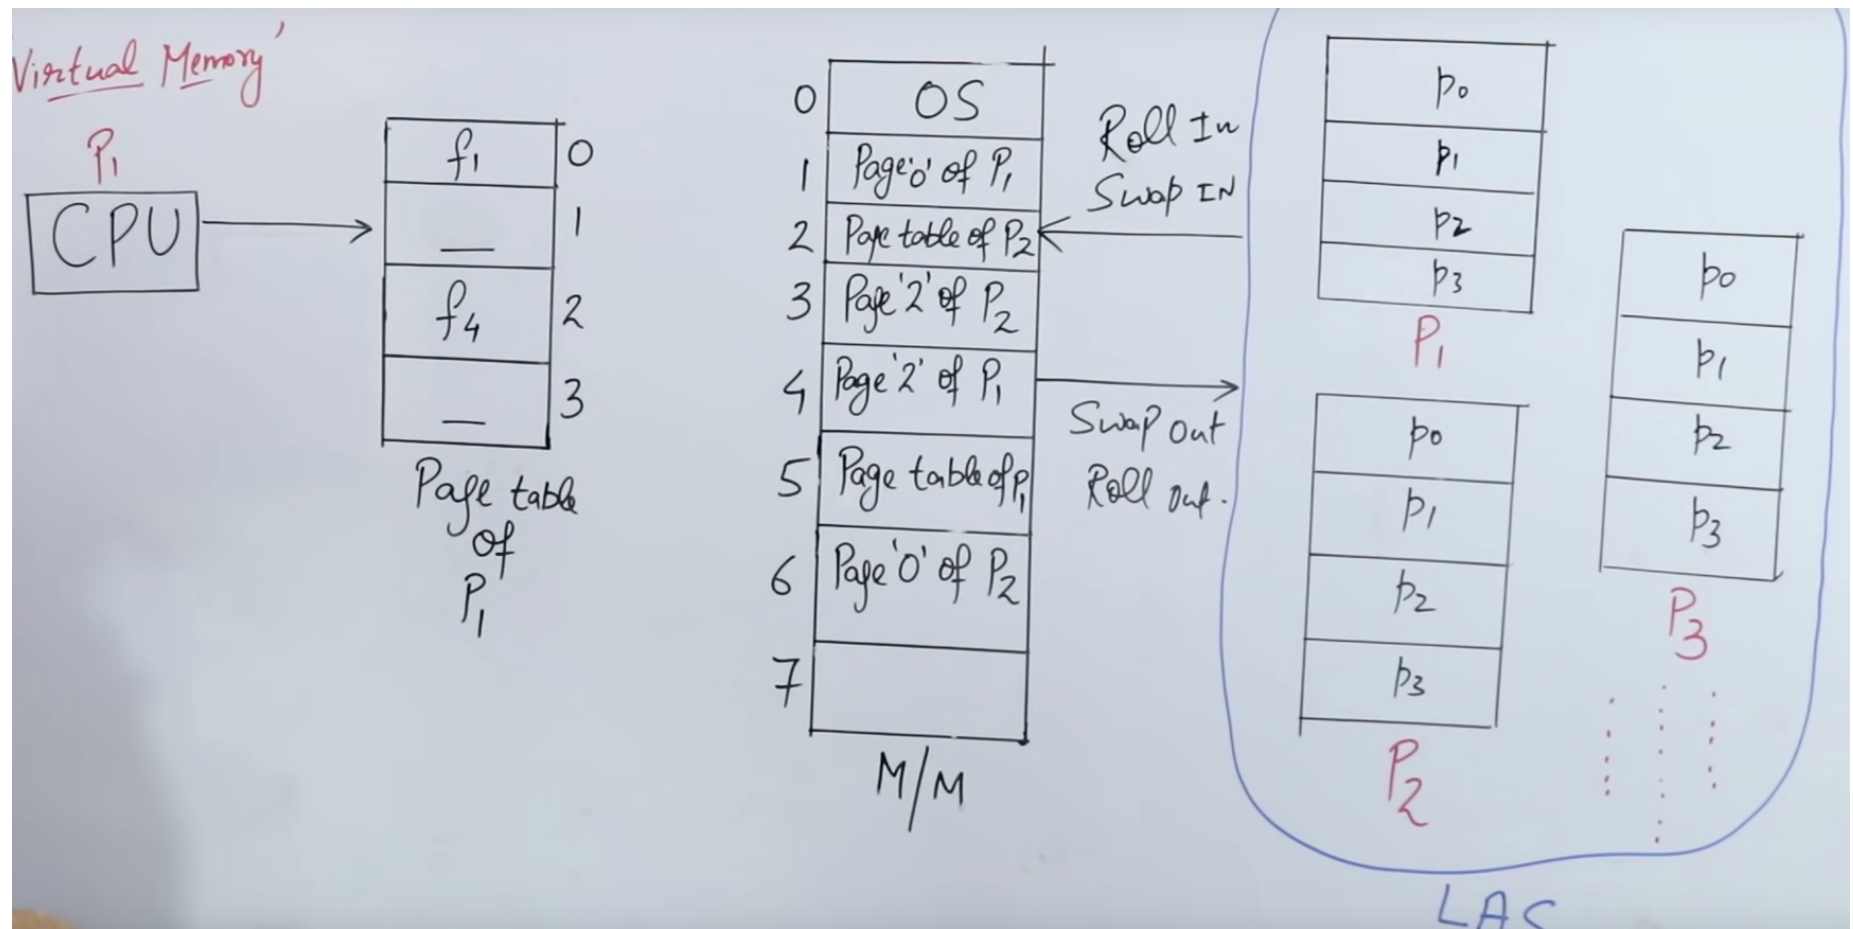 'Virtual Memory'
P1
CPU
f1 0
__ 1
f4 2
__ 3
Page table
of
P1
0 OS
1 Page '0' of P1
2 Page table of P2
3 Page '2' of P2
4 Page '2' of P1
5 Page table of P1
6 Page '0' of P2
7
M/M
Roll In
Swap IN
Swap out
Roll out.
p0
p1
p2
p3
P1
p0
p1
p2
p3
P2
p0
p1
p2
p3
P3
LAS